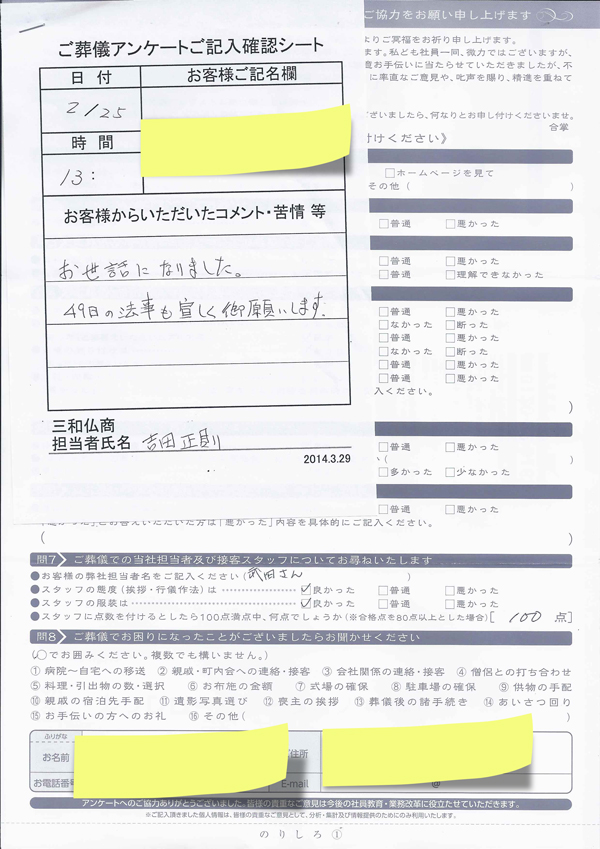 ご協力をお願い申し上げます
ご葬儀アンケートご記入確認シート
よりご冥福をお祈り申し上げます。
ます。私ども社員一同、微力ではございますが、
意お手伝いに当たらせていただきましたが、不
に率直なご意見や、叱声を賜り、精進を重ねて
日付
お客様ご記名欄
2/25
時間
13:
ざいましたら、何なりとお申し付けくださいませ。
合掌
付けください》
□ホームページを見て
その他(
)
お客様からいただいたコメント・苦情 等
□普通 □悪かった
お世話になりました。
□普通 □悪かった
□普通 □理解できなかった
49日の法事も宜しく御願いします.
□普通 □悪かった
□なかった □断った
□普通 □悪かった
□なかった □断った
□普通 □悪かった
□普通 □悪かった
入ください。
)
三和仏商
担当者氏名 吉田 正則
2014.3.29
□普通 □悪かった
い(
)
□多かった □少なかった
□普通 □悪かった
「悪かった」とお答えいただいた方は「悪かった」内容を具体的にご記入ください。
(
)
問7 ご葬儀での当社担当者及び接客スタッフについてお尋ねいたします
●お客様の弊社担当者名をご記入ください(武田さん )
●スタッフの態度(挨拶・行儀作法)は ☑良かった □普通 □悪かった
●スタッフの服装は ☑良かった □普通 □悪かった
●スタッフに点数を付けるとしたら100点満点中、何点でしょうか(※合格点を80点以上とした場合)[ 100 点]
問8 ご葬儀でお困りになったことがございましたらお聞かせください
(○でお囲みください。複数でも構いません。)
①病院〜自宅への移送 ②親戚・町内会への連絡・接客 ③会社関係の連絡・接客 ④僧侶との打ち合わせ
⑤料理・引出物の数・選択 ⑥お布施の金額 ⑦式場の確保 ⑧駐車場の確保 ⑨供物の手配
⑩親戚の宿泊先手配 ⑪遺影写真選び ⑫喪主の挨拶 ⑬葬儀後の諸手続き ⑭あいさつ回り
⑮お手伝いの方へのお礼 ⑯その他( )
ふりがな
お名前
ご住所
お電話番号
E-mail
@
アンケートへのご協力ありがとうございました。皆様の貴重なご意見は今後の社員教育・業務改革に役立たせていただきます。
※ご記入頂きました個人情報は、皆様の貴重なご意見として、分析・集計及び情報提供のためにのみ利用いたします。
のりしろ①